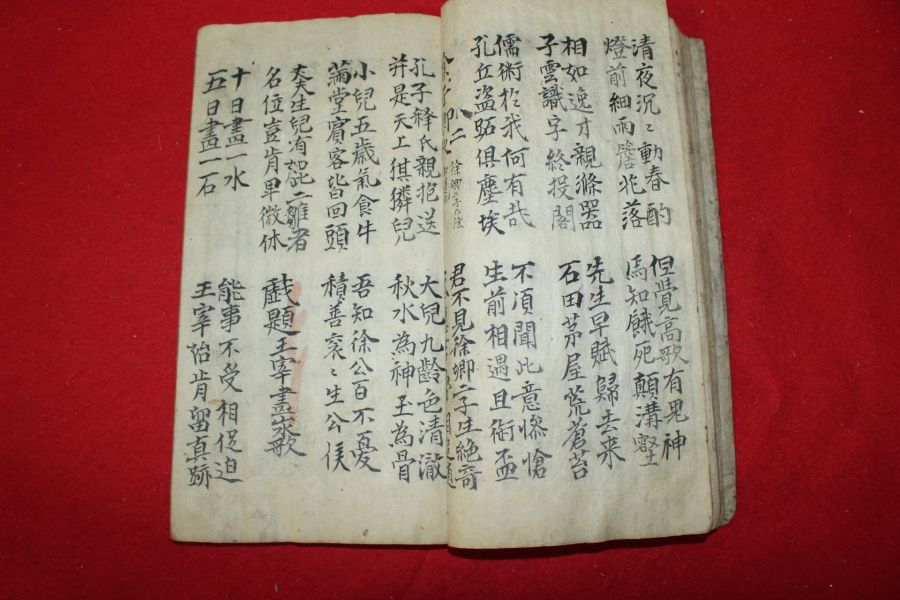 清夜沉〻動春酌
燈前細雨簷花落
但覺高歌有鬼神
焉知餓死顛溝壑
相如逸才親滌器
子雲識字終投閣
先生早賦歸去来
石田茅屋荒蒼苔
儒術於我何有哉
孔丘盜跖俱塵埃
不須聞此意慘愴
生前相遇且銜盃
君不見徐卿二子生絶奇
孔子釋氏親抱送
并是天上猉獜兒
大兒九齡色清澈
秋水為神玉為骨
小兒五歲氣食牛
滿堂賓客皆回頭
吾知徐公百不憂
積善袞〻生公侯
大夫生兒有如此二雛者
名位豈肯卑微休
戱題王宰畫山水歌
十日畫一水
五日畫一石
能事不受相促迫
王宰始肯留真跡